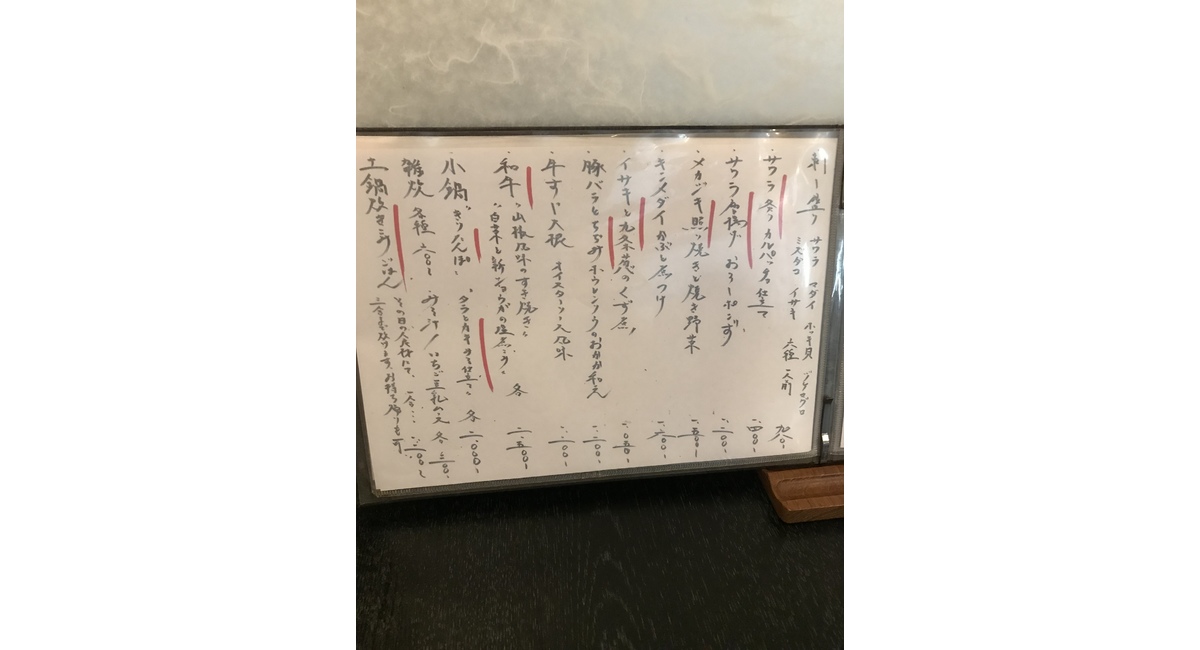 刺し盛り サワラ マダイ ホッキ貝 ノドグロ
ミズダコ イサキ 六種 一人前 九八〇
サワラ 炙り カルパッチョ仕立て 一、四〇〇
サワラ 唐揚げ おろしポンず 一、二〇〇
メカジキ 照り焼きと焼き野菜 一、五〇〇
キンメダイ かぶと煮つけ
イサキと九条葱のくず煮 一、〇五〇
豚バラとちぢみホウレンソウのおかか和え 一、二〇〇
牛すじ大根 オイスターソース風味 一、一〇〇
和牛 山椒風味のすき焼き
白菜と新ショウガの塩煮こみ 各 二、五〇〇
小鍋 きりたんぽ
タラとカキの仕立て 各 二、〇〇〇
雑炊 各種 六〇〇 みそ汁 いちご豆乳 各 三〇〇
土鍋炊きこみごはん その日の入荷にて、一合…
二合まで炊けます。お持ち帰りも可